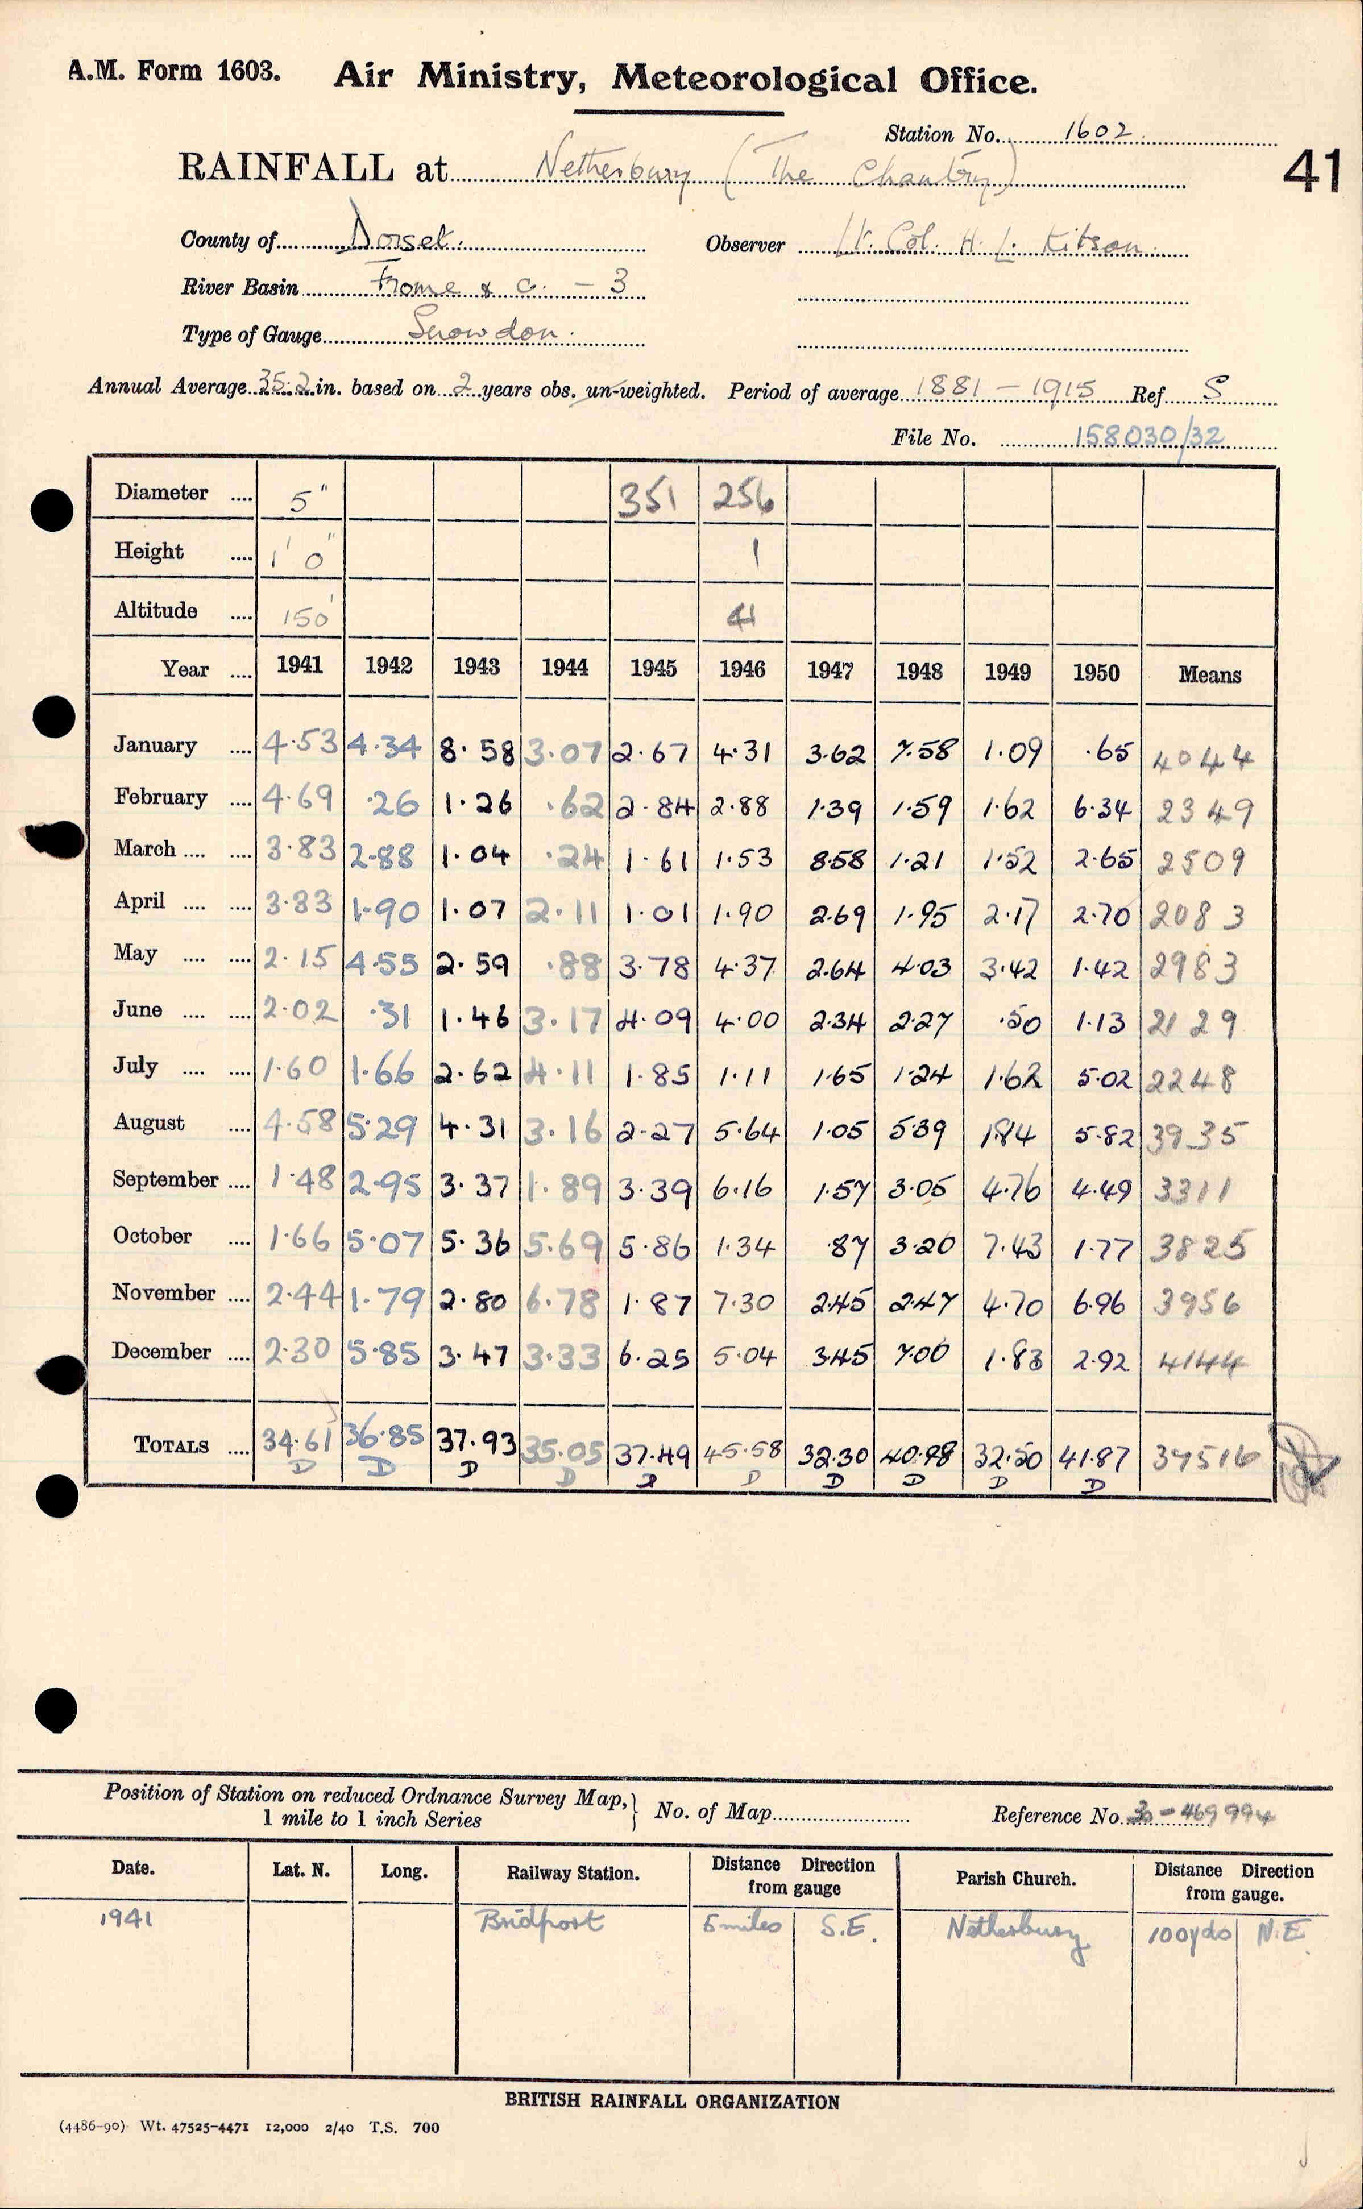 A.M. Form 1603. Air Ministry, Meteorological Office.
Station No. 1602
41
RAINFALL at Netherbury (The Chantry)
County of Dorset. Observer Lt. Col. H. L. Kitson.
River Basin Frome & c. – 3
Type of Gauge Snowdon.
Annual Average 35.2 in. based on 2 years obs. un-weighted. Period of average 1881 – 1915 Ref S
File No. 158030/32
Diameter .... 5" 351 256
Height .... 1' 0" 1
Altitude .... 150' 41
Year .... 1941 1942 1943 1944 1945 1946 1947 1948 1949 1950 Means
January .... 4.53 4.34 8.58 3.07 2.67 4.31 3.62 7.58 1.09 .65 4044
February .... 4.69 .26 1.26 .62 2.84 2.88 1.39 1.59 1.62 6.34 2349
March .... .... 3.83 2.88 1.04 .24 1.61 1.53 8.58 1.21 1.52 2.65 2509
April .... .... 3.33 1.90 1.07 2.11 1.01 1.90 2.69 1.95 2.17 2.70 2083
May .... .... 2.15 4.55 2.59 .88 3.78 4.37 2.64 4.03 3.42 1.42 2983
June .... .... 2.02 .31 1.46 3.17 4.09 4.00 2.34 2.27 .50 1.13 2129
July .... .... 1.60 1.66 2.62 4.11 1.85 1.11 1.65 1.24 1.62 5.02 2248
August .... 4.58 5.29 4.31 3.16 2.27 5.64 1.05 5.39 1.84 5.82 3935
September .... 1.48 2.95 3.37 1.89 3.39 6.16 1.57 3.05 4.76 4.49 3311
October .... 1.66 5.07 5.36 5.69 5.86 1.34 .87 3.20 7.43 1.77 3825
November .... 2.44 1.79 2.80 6.78 1.87 7.30 2.45 2.47 4.70 6.96 3956
December .... 2.30 5.85 3.47 3.33 6.25 5.04 3.45 7.00 1.83 2.92 4144
TOTALS .... 34.61 36.85 37.93 35.05 37.49 45.58 32.30 40.98 32.50 41.87 37516
D D D D D D D D D D
Position of Station on reduced Ordnance Survey Map, 1 mile to 1 inch Series } No. of Map Reference No. 30–469994
Date. Lat. N. Long. Railway Station. Distance Direction from gauge Parish Church. Distance Direction from gauge.
1941 Bridport 5 miles S.E. Netherbury 100yds N.E.
BRITISH RAINFALL ORGANIZATION
(4486-90) Wt. 47525-4471 12,000 2/40 T.S. 700